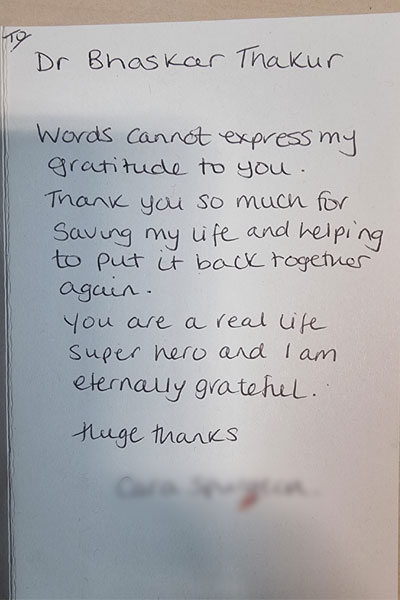 To
Dr Bhaskar Thakur
Words cannot express my
gratitude to you.
Thank you so much for
Saving my life and helping
to put it back together
again.
You are a real life
super hero and I am
eternally grateful.
Huge thanks